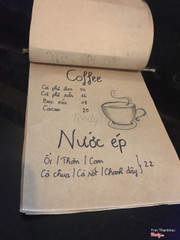 Coffee
Cà phê đen
Cà phê sữa
Bạc xỉu
Cacao 20
Nước ép
Ổi | Thơm | Cam
Cà chua | Cà rốt | Chanh dây } 22